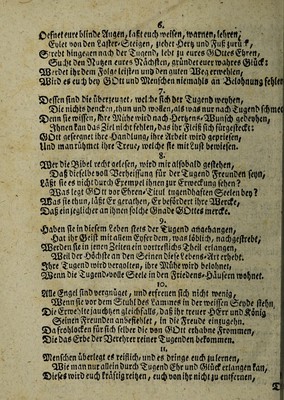 6.
Oefnet eure blinde Augen, laßt euch weisen, warnen, lehren,
Eylet von den Laster-Steigen, ziehet Hertz und Fuß zurück,
Strebt hingegen nach der Tugend, lebt zu eures GOttes Ehren,
Sucht den Nutzen eures Nächsten, gründet euer wahres Glück:
Werdet ihr dem Folge leisten und den guten Weg erwehlen,
Wird es euch bey GOtt und Menschen niemahls an Belohnung fehlen.
7.
Dessen sind die überzeuget, welche sich der Tugend weyhen,
Die nichts dencken, thun und wollen, als was nur nach Tugend schmeckt
Denn sie wissen, ihre Mühe wird nach Hertzens-Wunsch gedeyhen,
Ihnen kan das Ziel nicht fehlen, das ihr Fleiß sich fürgesteckt:
GOtt gesegnet ihre Handlung, ihre Arbeit wird gepriesen,
Und man rühmet ihre Treue, welche sie mit Lust bewiesen.
8.
Wer die Bibel recht gelesen, wird mir alsbald gestehen,
Daß dieselbe voll Verheissung für der Tugend Freunden seyn,
Läßt sie es nicht durch Exempel ihnen zur Erweckung sehen?
Was legt GOtt vor Ehren-Titul tugendhafften Seelen bey?
Was sie thun, läßt Er gerathen, Er befördert ihre Wercke,
Daß ein jeglicher an ihnen solche Gnade GOttes mercke.
9.
Haben sie in diesem Leben stets der Tugend angehangen,
Hat ihr Geist mit allem Eyfer dem, was löblich, nachgestrebt,
Werden sie in jenen Zeiten ein vortreflichs Theil erlangen,
Weil der Höchste an den Seinen diese Lebens-Art erhebt.
Ihre Tugend wird vergolten, ihre Mühe wird belohnet,
Wenn die Tugend-volle Seele in den Friedens-Häusern wohnet.
10.
Alle Engel sind vergnüget, und erfreuen sich nicht wenig,
Wenn sie vor dem Stuhl des Lammes in der weissen Seyde stehn,
Die Erwehlte jauchtzen gleichfalls, daß ihr treuer HErr und König
Seinen Freunden anbefiehlet, in die Freude einzugehn.
Da frohlocken für sich selber die von GOtt erhabne Frommen,
Die das Erbe der Verehrer reiner Tugenden bekommen.
11.
Menschen überlegt es reiflich, und es bringe euch zu lernen,
Wie man nur allein durch Tugend Ehr und Glück erlangen kan,
Dieses wird euch kräftig reitzen, euch von ihr nicht zu entfernen,